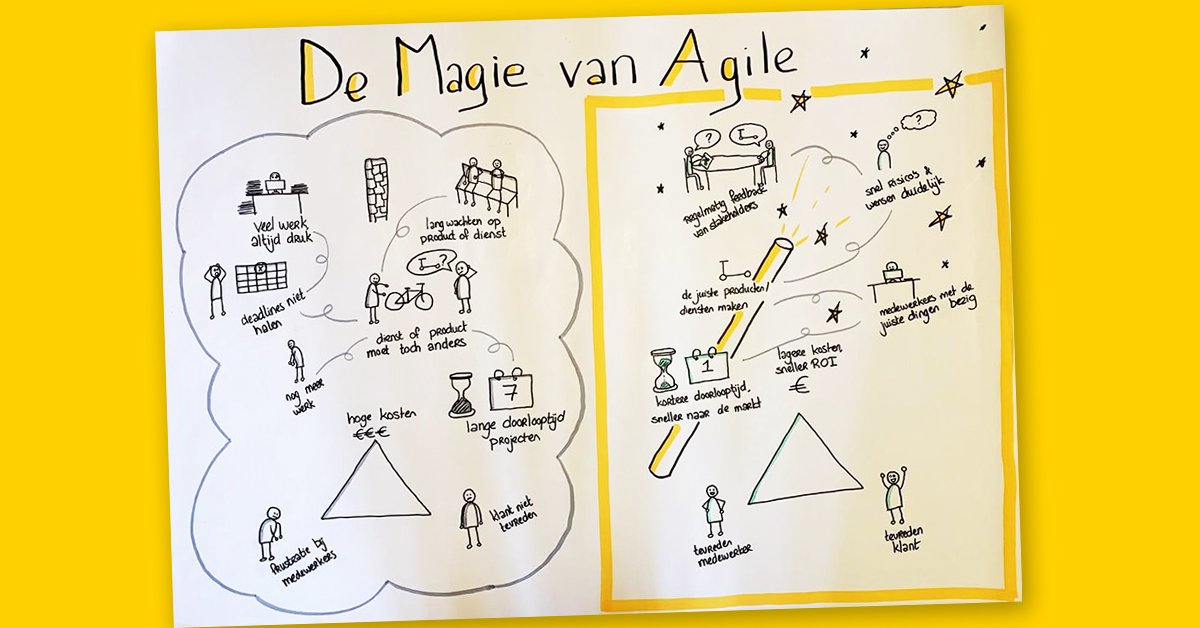 De Magie van Agile
veel werk
altijd druk
lang wachten op
product of dienst
?
deadlines niet
halen
dienst of product
moet toch anders
nog meer
werk
7
lange doorlooptijd
projecten
hoge kosten
€€€
frustratie bij
medewerkers
klant niet
tevreden
?
regelmatig feedback
van stakeholders
?
snel risico's &
wensen duidelijk
de juiste producten/
diensten maken
medewerkers met de
juiste dingen bezig
1
kortere doorlooptijd,
sneller naar de markt
lagere kosten,
sneller ROI
€
tevreden
medewerker
tevreden
klant